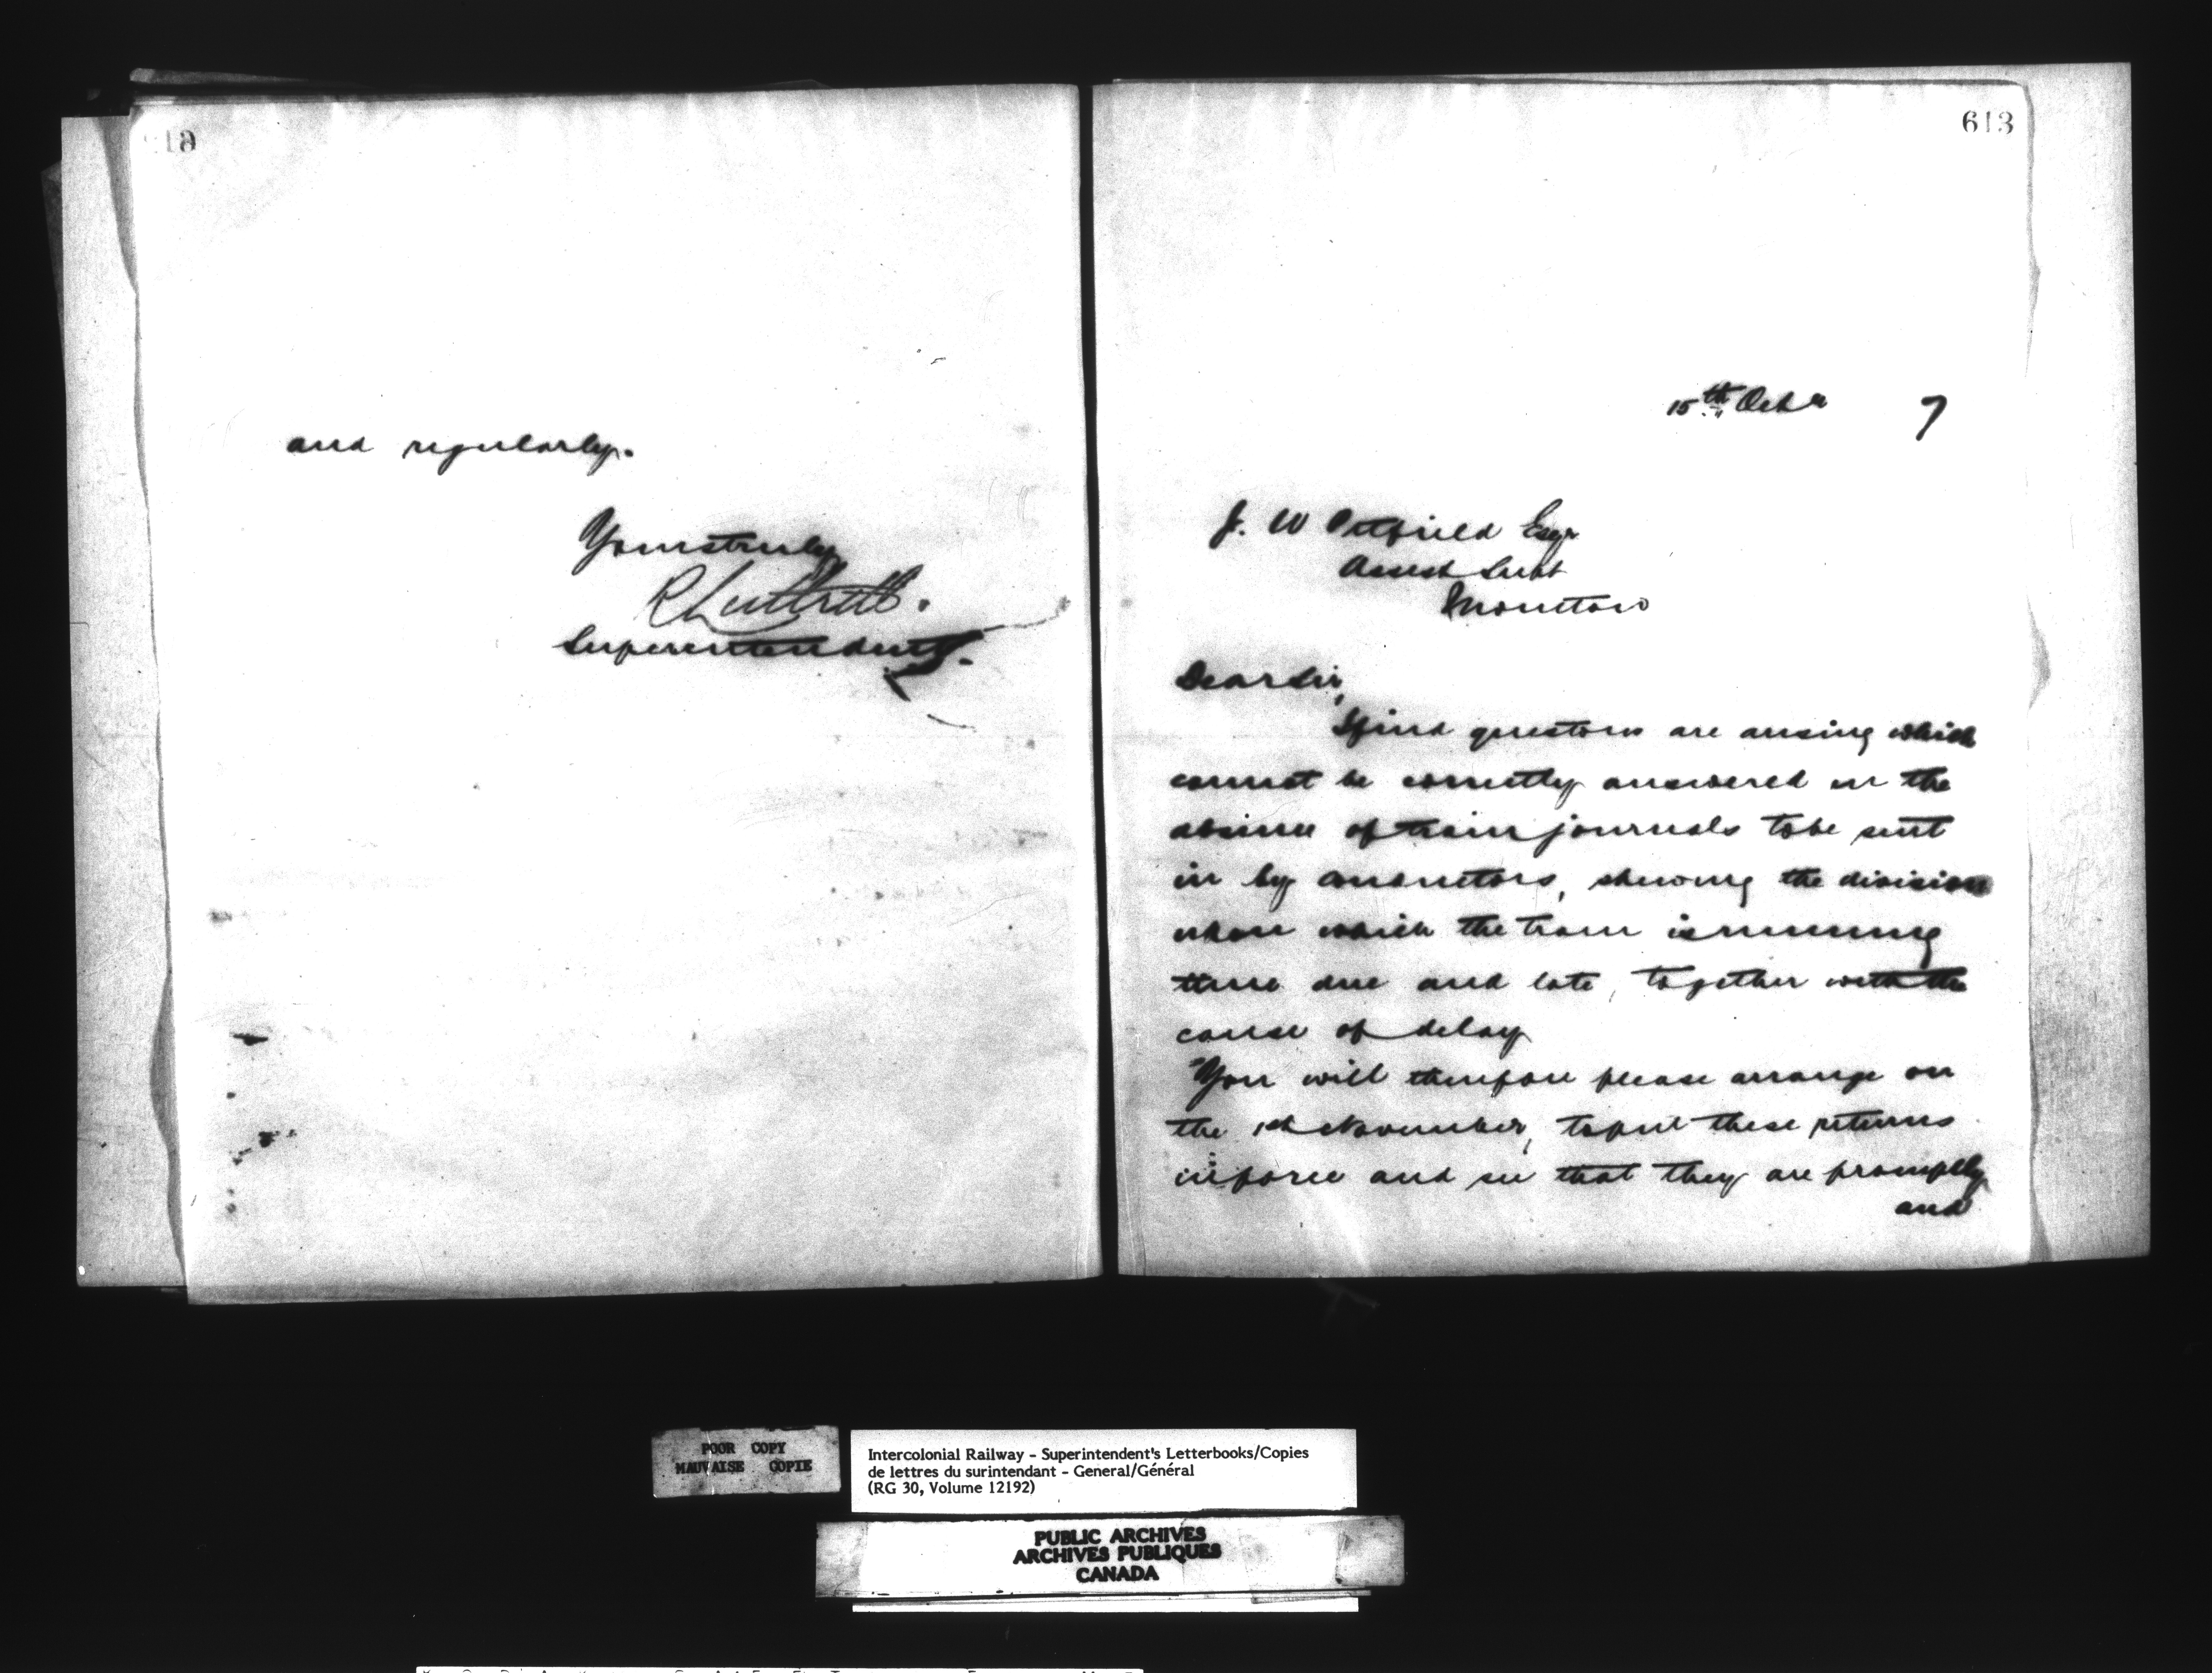 and regularly.
Yours truly
R Luttrell.
Superintendent.
613
15th Octr 7
J. W Pitfield Esqr
Assist Supt
Moncton
Dear Sir,
I find questions are arising which
cannot be correctly answered in the
absence of train journals to be sent
in by conductors, shewing the division
upon which the train is running
time due and late, together with the
cause of delay
You will therefore please arrange on
the 1st November, to put these returns
in force and see that they are promptly
and
POOR COPY
MAUVAISE COPIE
Intercolonial Railway - Superintendent's Letterbooks/Copies
de lettres du surintendant - General/Général
(RG 30, Volume 12192)
PUBLIC ARCHIVES
ARCHIVES PUBLIQUES
CANADA